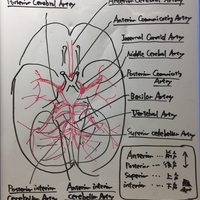 Posterior Cerebral Artery
Anterior Cerebral Artery
Anterior Communicating Artery
Internal Carotid Artery
Middle Cerebral Artery
Posterior Communicating Artery
Basilar Artery
Vertebral Artery
Superior cerebellar Artery
Anterior
Posterior
Superior
interior
Posterior interior
Cerebellar Artery
Anterior interior
Cerebellar Artery